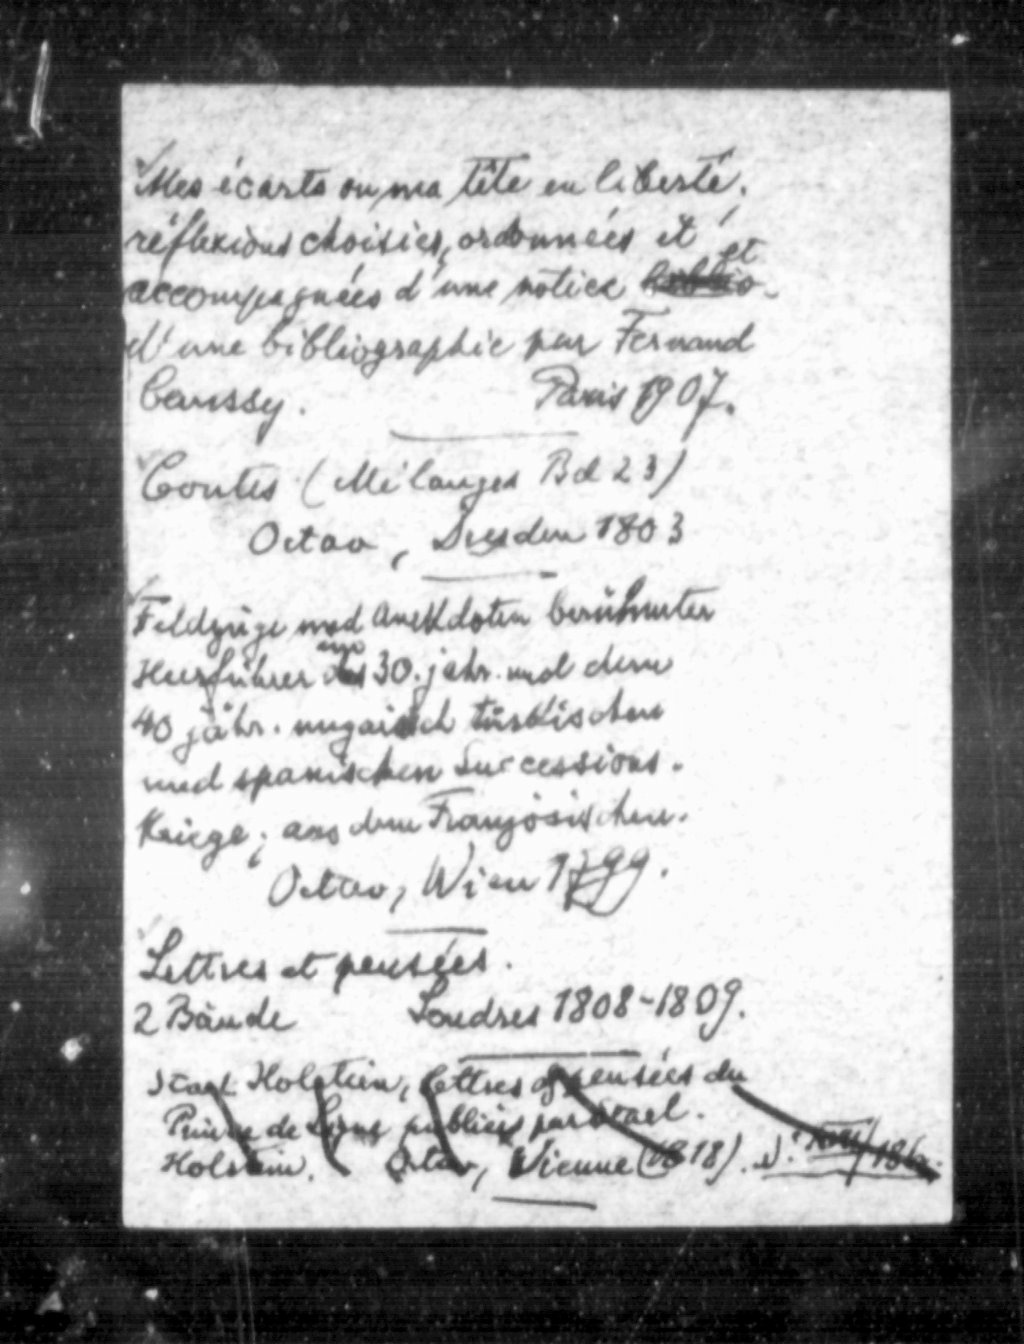 Mes écarts ou ma tête en liberté,
réflexions choisies, ordonnées et
accompagnées d'une notice et
d'une bibliographie par Fernand
Caussy. Paris 1907.
Contes (Mélanges Bd 23)
Octav, Dresden 1803
Feldzüge und Anekdoten berühmter
Heerführer aus 30. jähr. und dem
40 jähr. ungarisch türkischen
und spanischen Successions.
Kriege; aus dem Französischen.
Octav, Wien 1799.
Lettres et pensées.
2 Bände Londres 1808-1809.
Stael Holstein, lettres et pensées du
Prince de Ligne publiées par Stael.
Holstein. Octav, Vienne (1818).